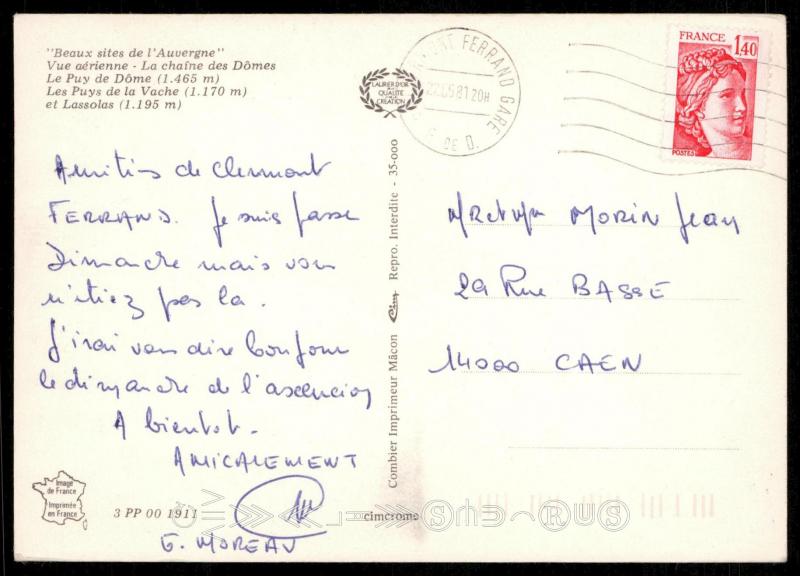 "Beaux sites de l'Auvergne"
Vue aérienne - La chaîne des Dômes
Le Puy de Dôme (1.465 m)
Les Puys de la Vache (1.170 m)
et Lassolas (1.195 m)
LAURIER D'OR
QUALITÉ
CRÉATION
FERRAND GARE
20H
DE D.
FRANCE
1,40
POSTES
Amitiés de Clermont
FERRAND. Je suis passe
Dimanche mais vous
n'étiez pas la.
J'irai vous dire bonjour
le dimanche de l'ascencion
A bientot.
AMICALEMENT
G. MOREAU
Mr et Mme MORIN Jean
29 Rue BASSE
14000 CAEN
Combier Imprimeur Mâcon Cim Repro. Interdite - 35-000
Image
de France
Imprimée
en France
3 PP 00 1911
cimcrome